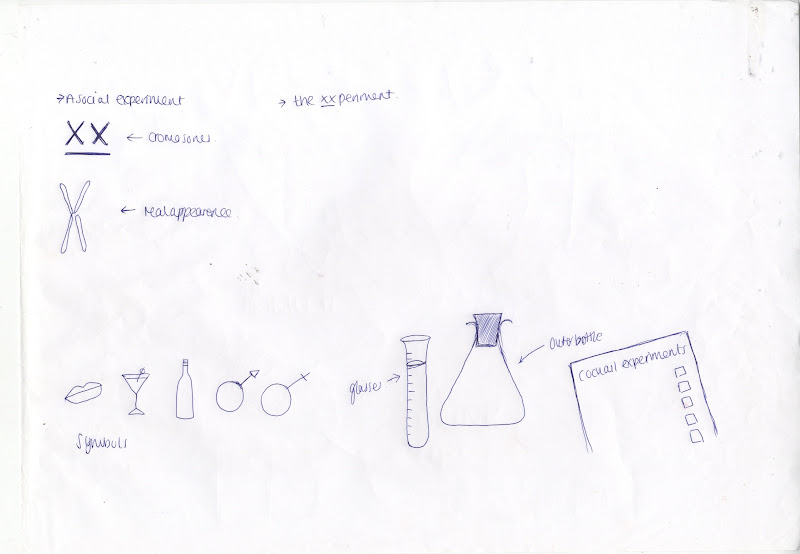 → A social experiment
→ the xxperiment.
XX ← Cromosones.
← real appearence.
Symbols
glasses →
← Outer bottle
Cocktail experiments